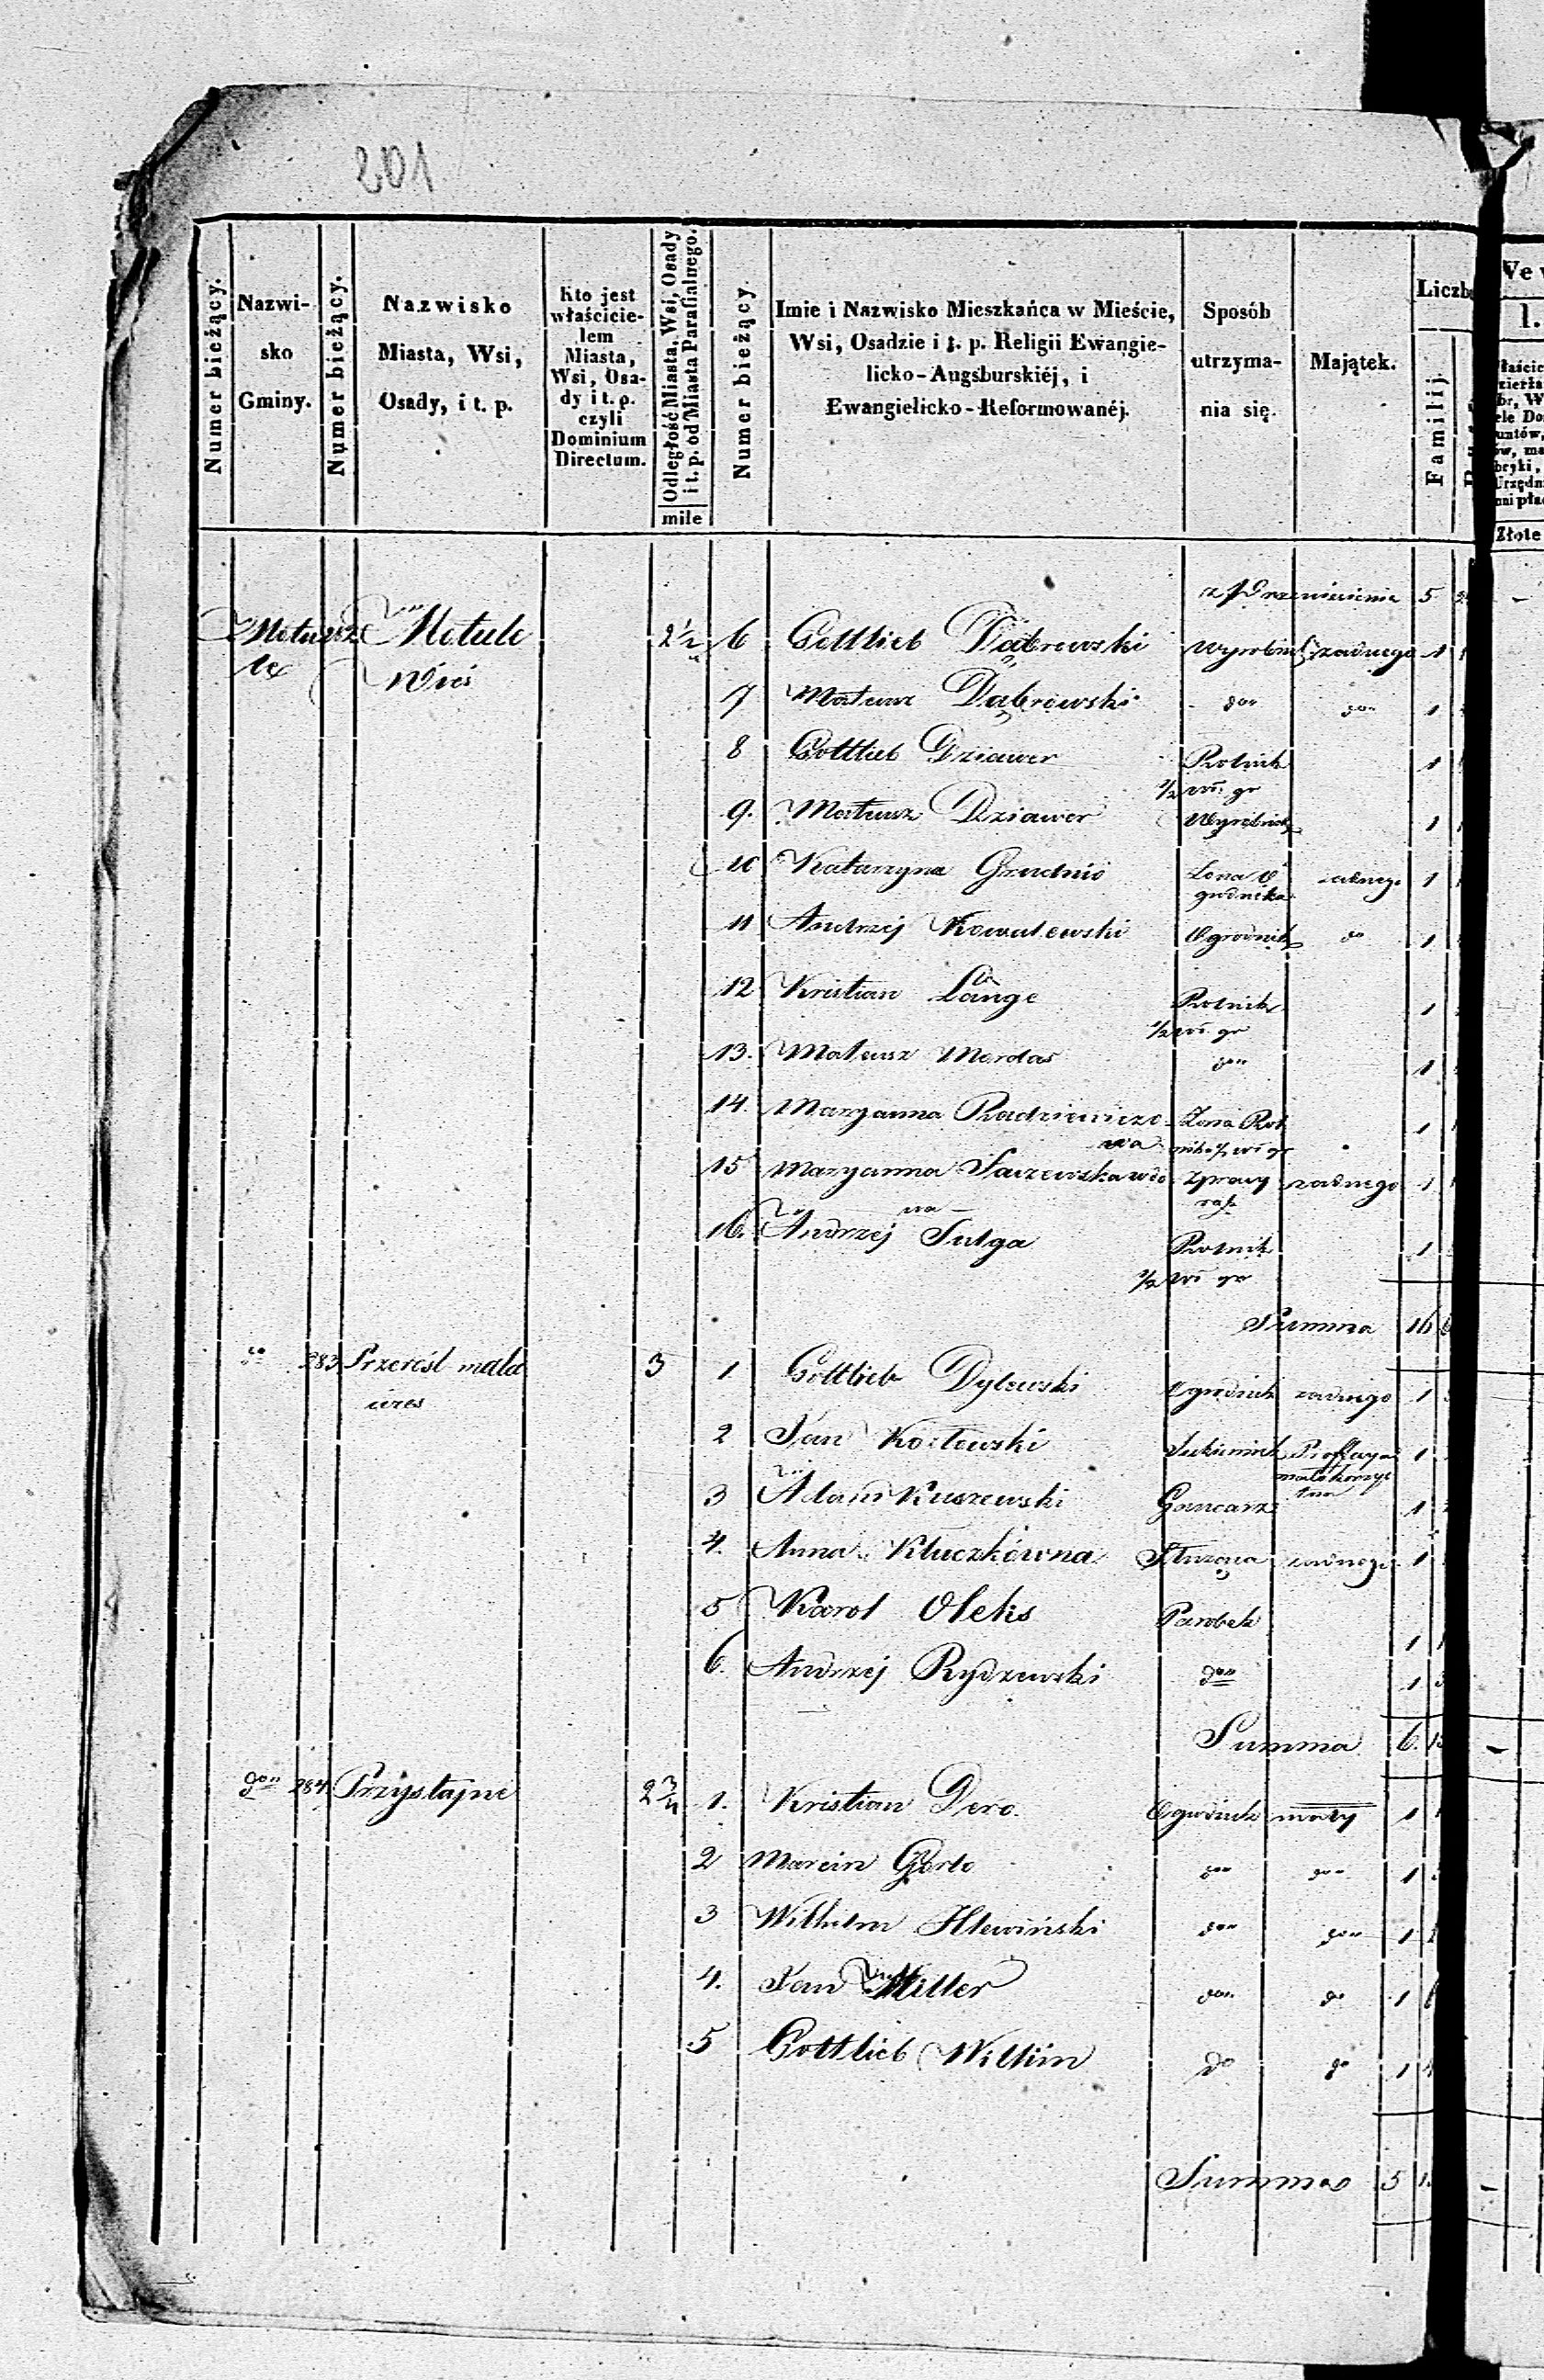 201
Numer bieżący.
Nazwi-
sko
Gminy.
Numer bieżący.
Nazwisko
Miasta, Wsi,
Osady, i t. p.
Kto jest
właścicie-
lem
Miasta,
Wsi, Osa-
dy i t. p.
czyli
Dominium
Directum.
Odległość Miasta, Wsi, Osady
i t. p. od Miasta Parafialnego.
mile
Numer bieżący.
Imie i Nazwisko Mieszkańca w Mieście,
Wsi, Osadzie i t. p. Religii Ewangie-
licko-Augsburskiéj, i
Ewangielicko-Reformowanéj.
Sposób
utrzyma-
nia się.
Majątek.
Liczba
Familij.
z Przeniesienia 5
Motu 282 Motule 2 1/2 6 Gottlieb Dąbrowski wyrobnik żadnego 1
le Wieś
7 Mateusz Dąbrowski do do 1
8 Gottlieb Dziawer Rolnik 1
1/2 wł. gr
9. Mateusz Dziawer Wyrobnik 1
10 Katarzyna Grudnio Żona O żadnego 1
grodnika
11 Andrzej Kowalewski Ogrodnik do 1
12 Kristian Lange Rolnik 1
1/2 wł. gr
13. Mateusz Mordas do 1
14. Maryanna Radziewiczo- Żona Rol 1
wa nika 1/2 wł gr
15 Maryanna Saczewska wdo Z pracy żadnego 1
wa rąk
16. Andrzej Sulga Rolnik 1
1/2 wł gr
Summa 16
do 283 Przerośl mała 3 1 Gottlieb Dylewski Ogrodnik żadnego 1
wieś
2 Jan Kozłowski Sukiennik Professya 1
mało korzys
tna
3 Adam Kuszewski Garncarz 1
4. Anna Kluczkówna Służąca żadnego 1
5 Karol Oleks Parobek 1
6. Andrzej Rydzewski do 1
Summa 6.
do 284 Przystajne 2 3/4 1. Kristian Dero. Ogrodnik mały 1
2 Marcin Gorlo do do 1
3 Wilhelm Hlewiński do do 1
4. Jan Miller do do 1
5 Gottlieb Wilkin do do 1
Summa 5